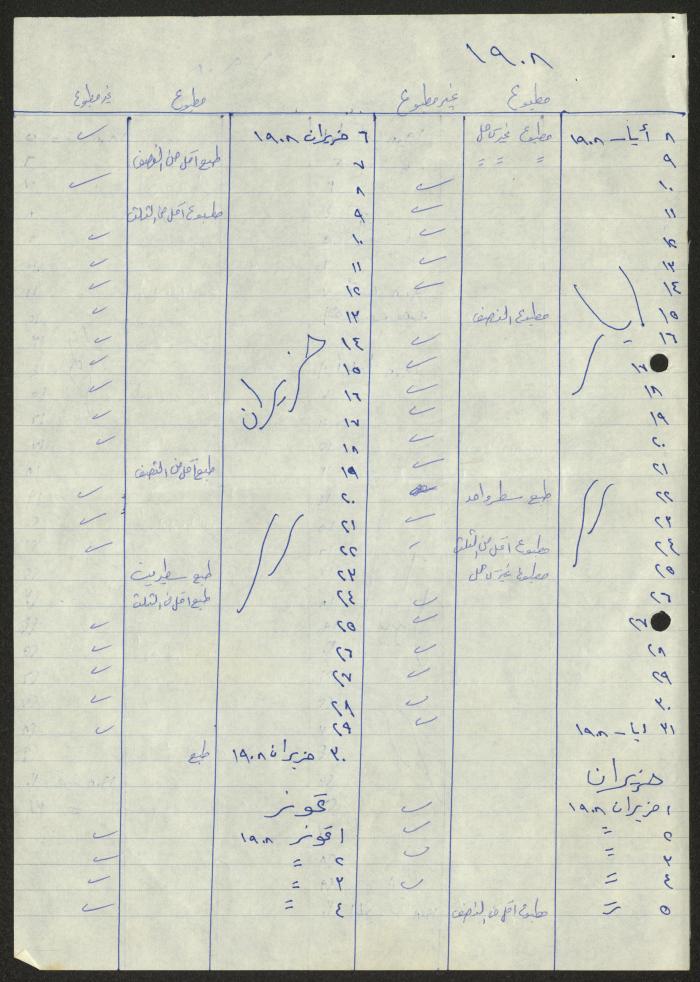 ١٩٠٨
مطبوع غير مطبوع
٨ أيار ١٩٠٨ مطبوع غير كامل
٩ = = =
١٠ ✓
١١ ✓
١٢ ✓
١٣ ✓
١٤ ✓
١٥ مطبوع النصف
١٦ ✓
١٧ ✓
١٨ ✓
١٩ ✓
٢٠ ✓
٢١ ✓
٢٢ طبع سطر واحد
٢٣ ✓
٢٤ مطبوع اقل من الثلث
٢٥ مطبوع غير كامل
٢٦ ✓
٢٧ ✓
٢٨ ✓
٢٩ ✓
٣٠ ✓
٣١ ايار ١٩٠٨ ✓
أيار
حزيران
١ حزيران ١٩٠٨ ✓
٢ = ✓
٣ = ✓
٤ = ✓
٥ = مطبوع اقل من النصف
مطبوع غير مطبوع
٦ حزيران ١٩٠٨ ✓
٧ طبع اقل من النصف
٨ ✓
٩ مطبوع اقل من الثلث
١٠ ✓
١١ ✓
١٢ ✓
١٣ ✓
١٤ ✓
١٥ ✓
١٦ ✓
١٧ ✓
١٨ ✓
١٩ طبع اقل من النصف
٢٠ ✓
٢١ ✓
٢٢ ✓
٢٣ طبع سطرين
٢٤ طبع اقل من الثلث
٢٥ ✓
٢٦ ✓
٢٧ ✓
٢٨ ✓
٢٩ ✓
حزيران
٣٠ حزيران ١٩٠٨ طبع
تموز
١ تموز ١٩٠٨ ✓
٢ = ✓
٣ = ✓
٤ = ✓